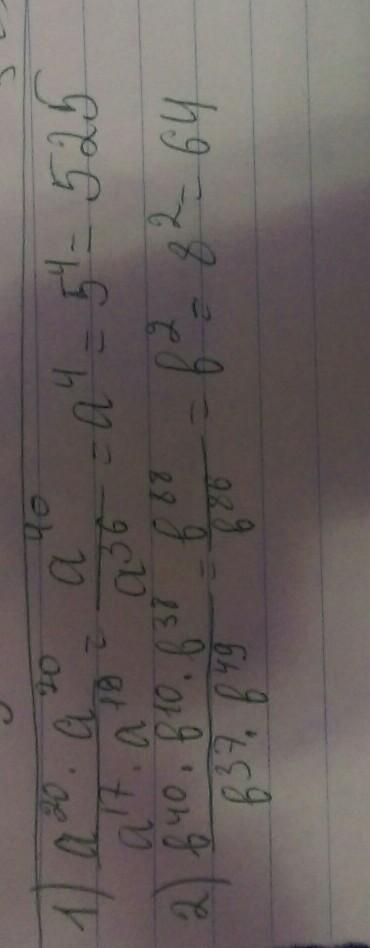 1) a²⁰ · a²⁰ / a¹⁷ · a¹⁹ = a⁴⁰ / a³⁶ = a⁴ = 5⁴ = 525
2) в⁴⁰ · в¹⁰ · в³⁸ / в³⁷ · в⁴⁹ = в⁸⁸ / в⁸⁶ = в² = 8² = 64